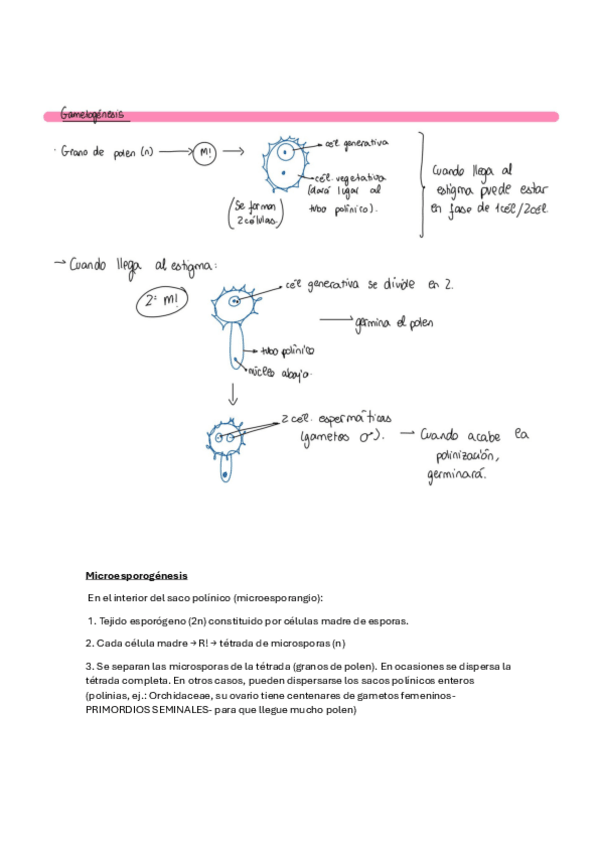 Gametogénesis
· Grano de polen (n) → M! →
cél generativa
cél. vegetativa
(dará lugar al
tubo polínico).
(Se forman
2 células.)
Cuando llega al
estigma puede estar
en fase de 1cél/2cél.
→ Cuando llega al estigma:
2ª M!
cél generativa se divide en 2.
→ germina el polen
tubo polínico
núcleo abajo.
2 cél. espermáticas
(gametos ♂). → Cuando acabe la
polinización,
germinará.
Microesporogénesis
En el interior del saco polínico (microesporangio):
1. Tejido esporógeno (2n) constituido por células madre de esporas.
2. Cada célula madre → R! → tétrada de microsporas (n)
3. Se separan las microsporas de la tétrada (granos de polen). En ocasiones se dispersa la
tétrada completa. En otros casos, pueden dispersarse los sacos polínicos enteros
(polinias, ej.: Orchidaceae, su ovario tiene centenares de gametos femeninos-
PRIMORDIOS SEMINALES- para que llegue mucho polen)